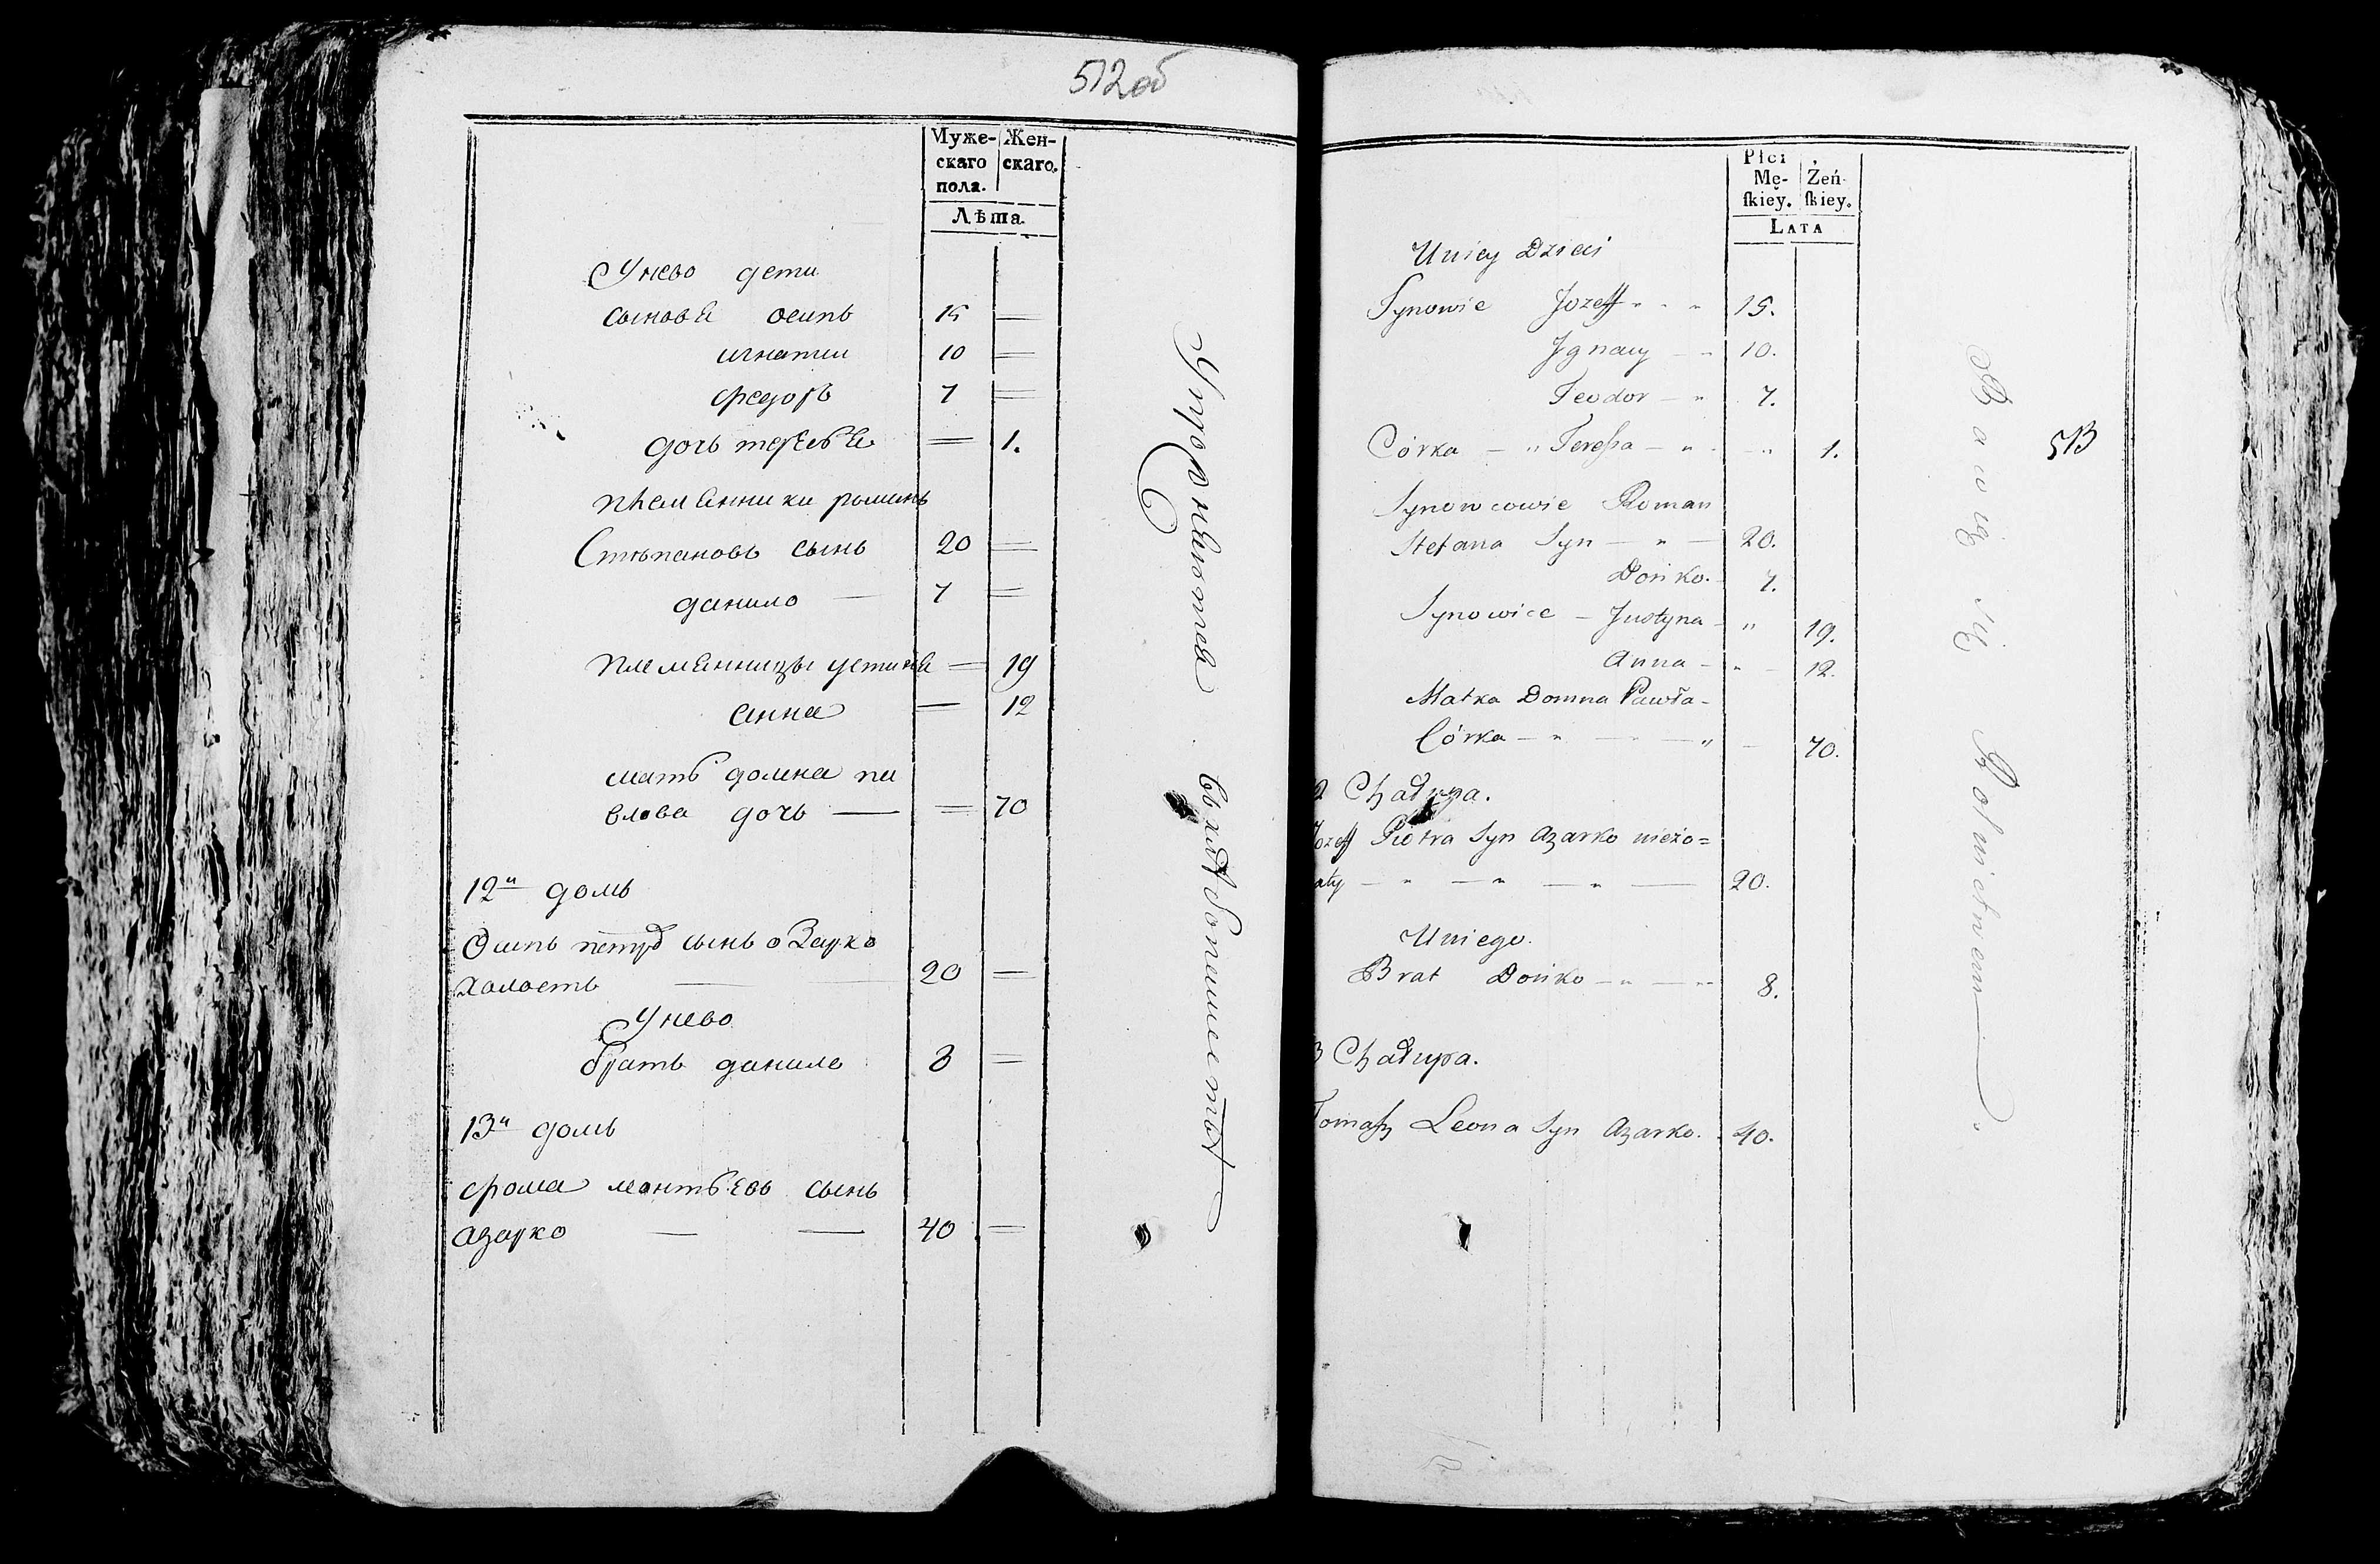 512об
Муже- Жен-
скаго скаго.
пола.
Лѣта.
Унево дети
сынове осипъ 15
игнатии 10
федоръ 7
дочь тересе 1.
племенники романъ
Степановъ сынъ 20
данило — 7
племенницы устине — 19
анна — 12
мать домна па
влова дочь — 70
12й домъ
Осипъ петръ сынъ оЗарко
холостъ — 20
Унево
братъ данило 8
13й домъ
фома леонтьевъ сынъ
азарко — — 40
Упражняются в хлебопашестве
Płci
Mę- Żeń-
ſkiey. ſkiey.
LATA
Uniey Dzieci
Synowie Jozeff 15.
Jgnacy 10.
Teodor 7.
Córka Tereſsa 1.
Synowcowie Roman
Stefana Syn 20.
Dońko. 7.
Synowice Justyna 19.
Anna 12.
Matka Domna Pawła-
Córka 70.
2 Chałupa.
Jozeff Piotra Syn Azarko nieżo=
aty 20.
Uniego.
Brat Dońko 8.
3 Chałupa.
Tomaſz Leona Syn Azarko. 40.
Bawią się Rolnictwem.
513